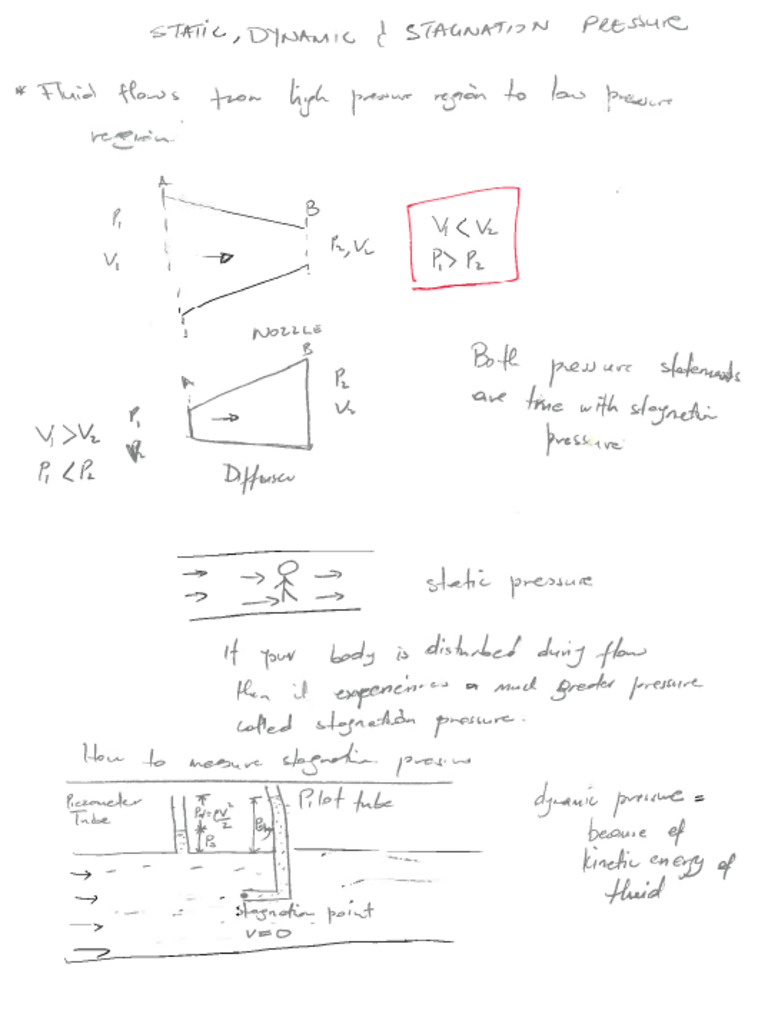 STATIC, DYNAMIC & STAGNATION PRESSURE
* Fluid flows from high pressure region to low pressure
region
A
B
P₁
V₁
P₂, V₂
V₁ < V₂
P₁ > P₂
NOZZLE
A
B
P₂
V₂
P₁
V₁ > V₂
P₁ < P₂
Diffuser
Both pressure statements
are true with stagnation
pressure
static pressure
If your body is disturbed during flow
then it experiences a much greater pressure
called stagnation pressure.
How to measure stagnation pressure
Piezometer
Tube
Pd = ρV²/2
Ps
Pitot tube
stagnation point
V=0
dynamic pressure =
because of
kinetic energy of
fluid